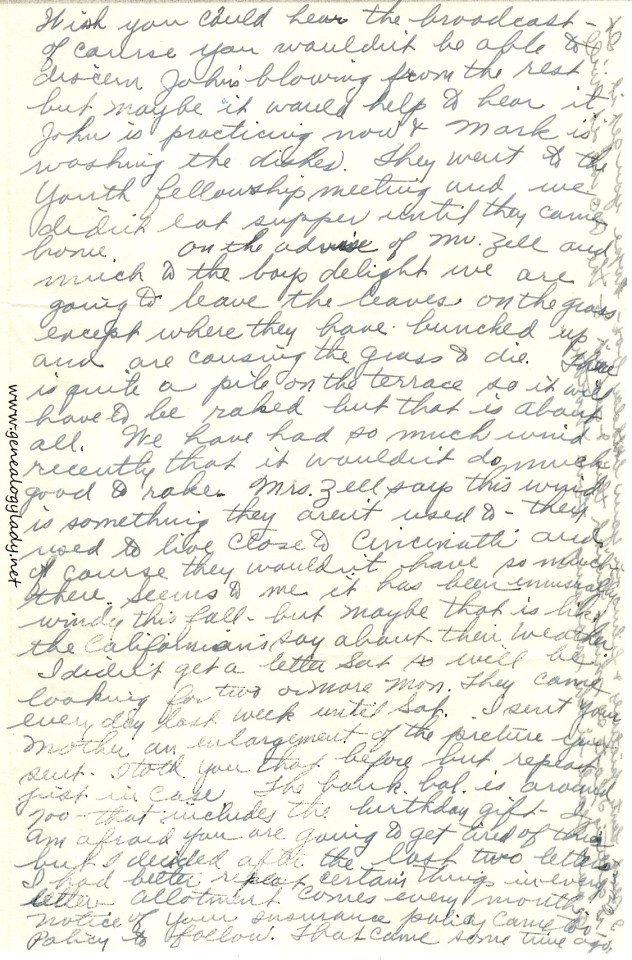 Wish you could hear the broadcast -
of course you wouldn't be able to
discern John's blowing from the rest
but maybe it would help to hear it.
John is practicing now & Mark is
washing the dishes. They went to the
Youth fellowship meeting and we
didn't eat supper until they came
home. On the advise of Mr. Zell and
much to the boys delight we are
going to leave the leaves on the grass
except where they have bunched up
and are causing the grass to die. There
is quite a pile on the terrace so it will
have to be raked but that is about
all. We have had so much wind
recently that it wouldn't do much
good to rake. Mrs. Zell says this wind
is something they aren't used to - they
used to live close to Cincinatti and
of course they wouldn't have so much
there. Seems to me it has been unusually
windy this fall - but maybe that is like
the Californians say about their weather.
I didn't get a letter Sat so will be
looking for two or more Mon. They came
every day last week until Sat. I sent your
Mother an enlargement of the picture you
sent. I told you that before but repeat
just in case. The bank bal. is around
700 - that includes the birthday gift - I
am afraid you are going to get tired of this
but I decided after the last two letters
I had better repeat certain things in every
letter allotment comes every month.
Notice of your insurance policy came too
Policy to follow. That came some time ago.
www.genealogylady.net